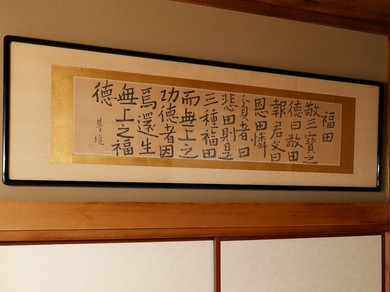 福田
敬三寶之
德曰敬田
報君父曰
恩田憐
貧者曰
悲田則是
三種福田
而無上之
功德者因
焉還生
無上之福
德